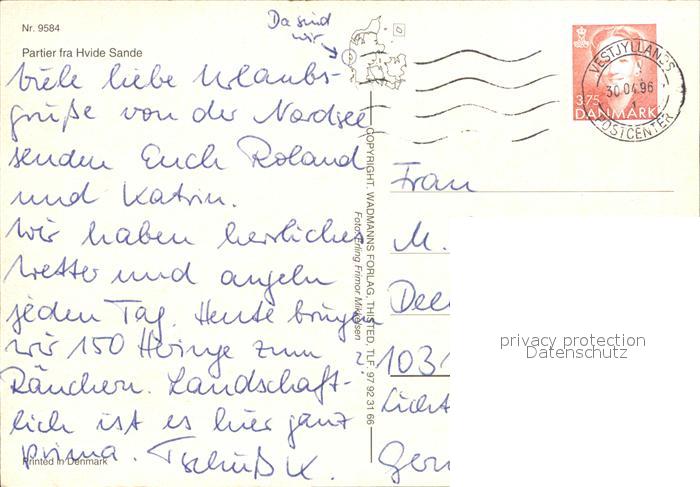 Nr. 9584
Partier fra Hvide Sande
Da sind
wir
Viele liebe Urlaubs-
grüße von der Nordsee
senden Euch Roland
und Katrin.
Wir haben herrliches
Wetter und angeln
jeden Tag. Heute bringen
wir 150 Heringe zum
Räuchern. Landschaft-
lich ist es hier ganz
prima. Tschüß K.
Printed in Denmark
COPYRIGHT. WADMANNS FORLAG, THISTED, TLF. 97 92 31 66
Foto: Erling Frimor Mikkelsen
VESTJYLLANDS
30.04.96
1
POSTCENTER
3.75
DANMARK
Frau
M.
1031
Licht
Ger
privacy protection
Datenschutz